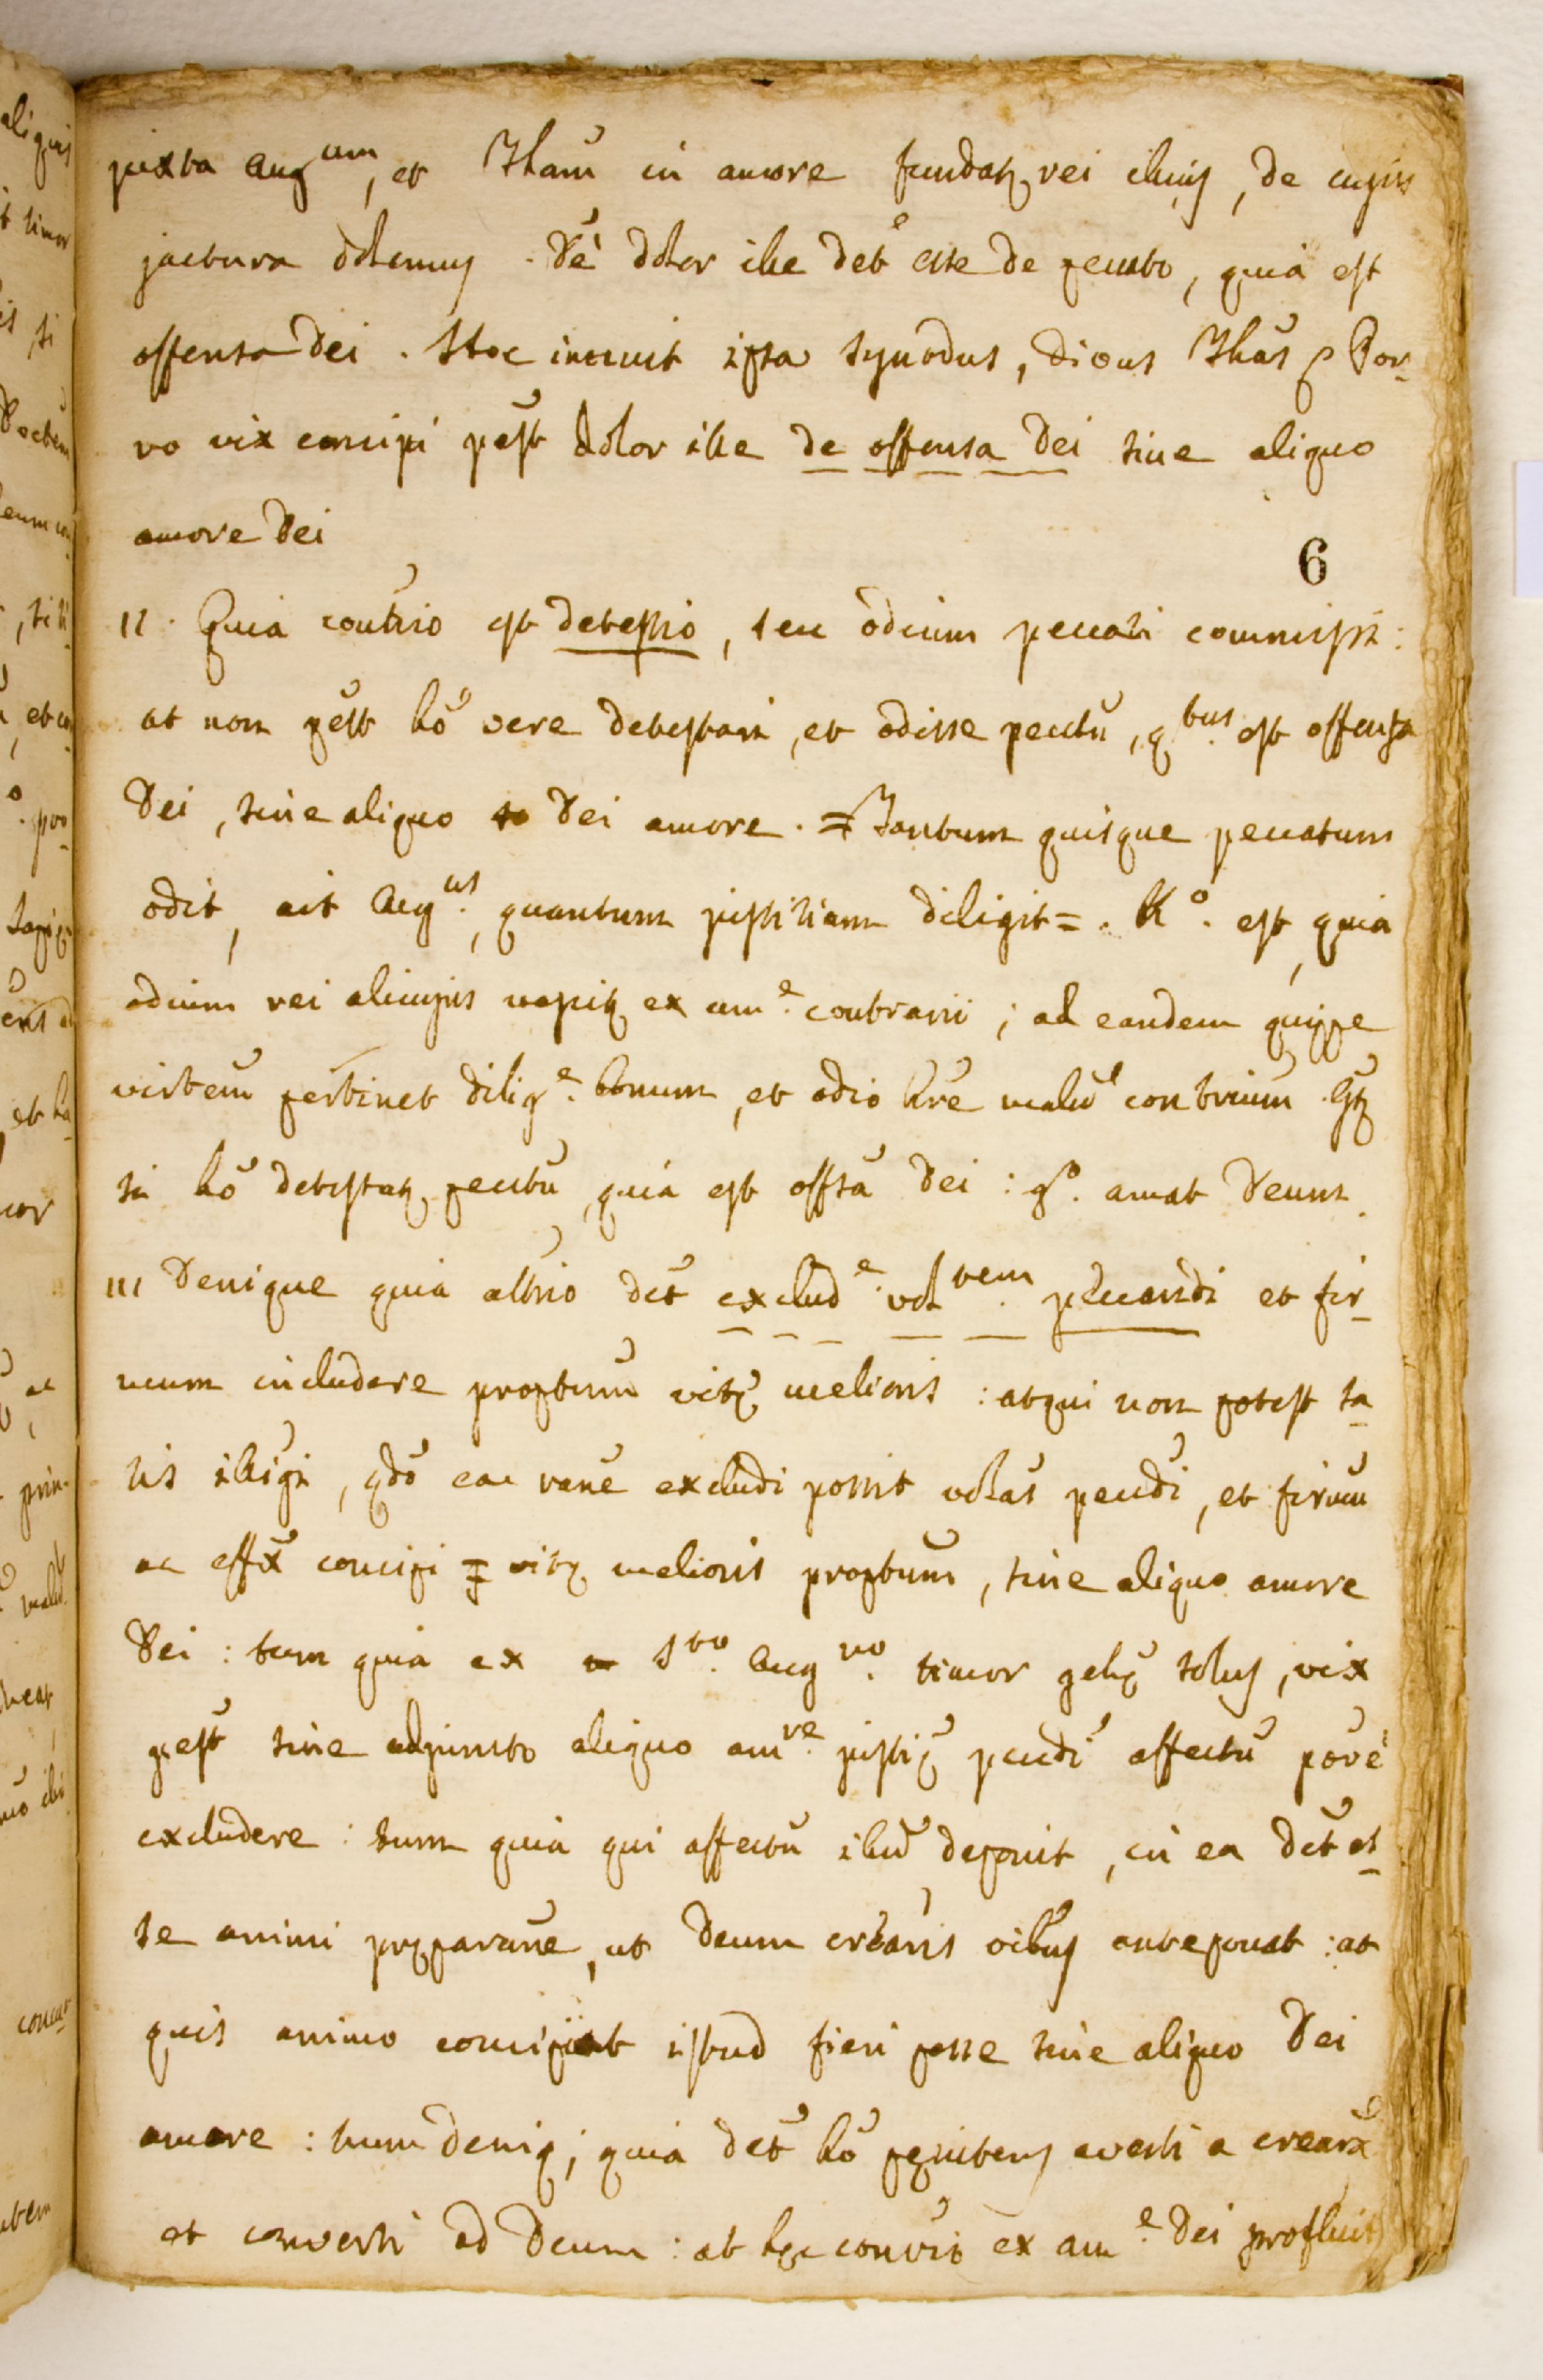 juxta Aug.um, et Tham̃ in amore fundatq rei illius, de cujus
jactura dolemus. Vẽ dolor ille debe esse de peccato, quia est
offensa Dei. Hoc innuit ipsa Synodus, divus Thãs Por-
ro vix concipi põst dolor ille de offensa Dei sine aliquo
amore Dei
6
II. Quia contr̃io est detestio, seu odium peccati commissi:
at non põst hõ vere detestari, et odisse pecctũ, qtus est offensa
Dei, sine aliquo Dei amore. = Tantum quisque peccatum
odit, ait Aug.us, quantum justitiam diligit =. Ro. est, quia
odium rei alicujus nascitq ex am.e contrarii; ad eandem quippe
virtem̃ pertinet dilig.e bonum, et odio hr̃e malũ contrium̃.
si hõ detestatq pecctũ, quia est offsã Dei: go. amat Deum.
III Denique quia attr̃io det̃ exclud.e vol.tem peccandi et fir-
mum includere proptum̃ vitę melioris: atqui non potest ta-
lis illigi, qdõ eac rañe excludi possit voltãs peccdĩ, et firmũ
ac effx̃ concipi vitę melioris proptum̃, sine aliquo amore
Dei: tum quia ex Sto. Aug.no timor gehę solus, vix
põst sine adjuncto aliquo am.re justię̃ peccdĩ affectũ põrẽ
excludere: tum quia qui affectũ illũd deponit, in ea det̃ es-
se animi pręparañe, ut Deum creãris oĩbus anteponat: at
quis animo concipiat istud fieri posse sine aliquo Dei
amore: tum deniq; quia det̃ hõ pęnitens averti a creãrã
et converti ad Deum: at hęc convrĩo ex am.e Dei profluit